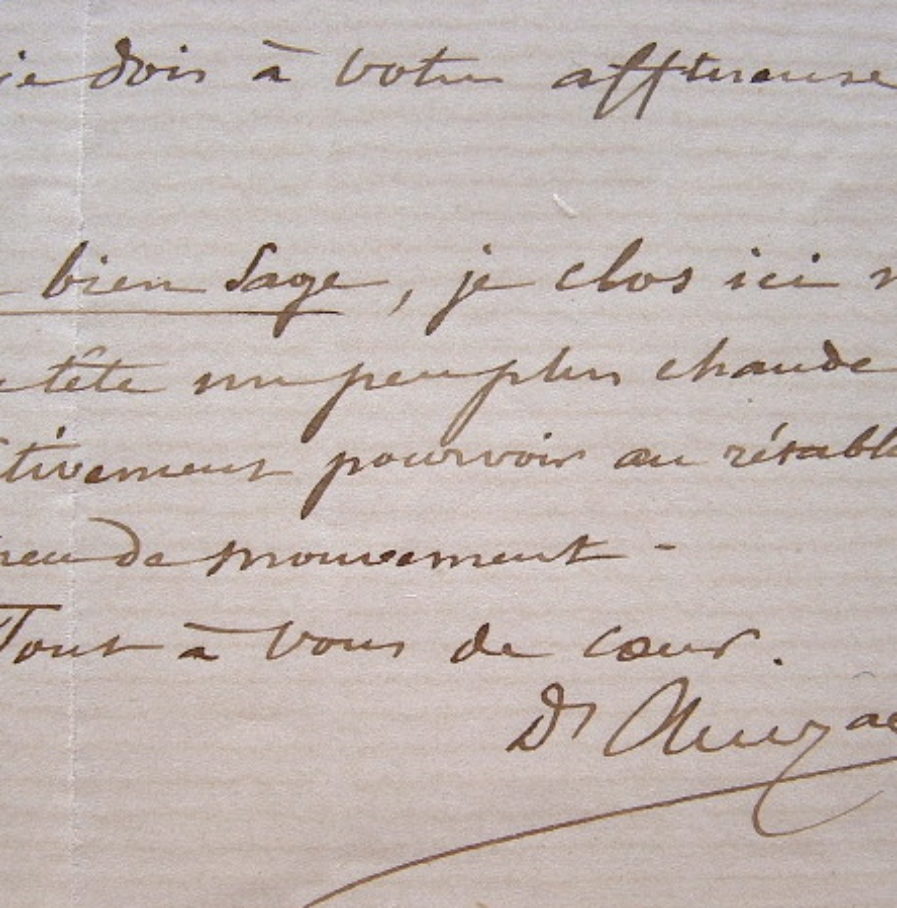 je dois à votre affectueuse
bien sage, je clos ici
tête un peu plus chaude
tivement pourvoir au rétabl
peu de mouvement -
Tout à vous de cœur.
Dr